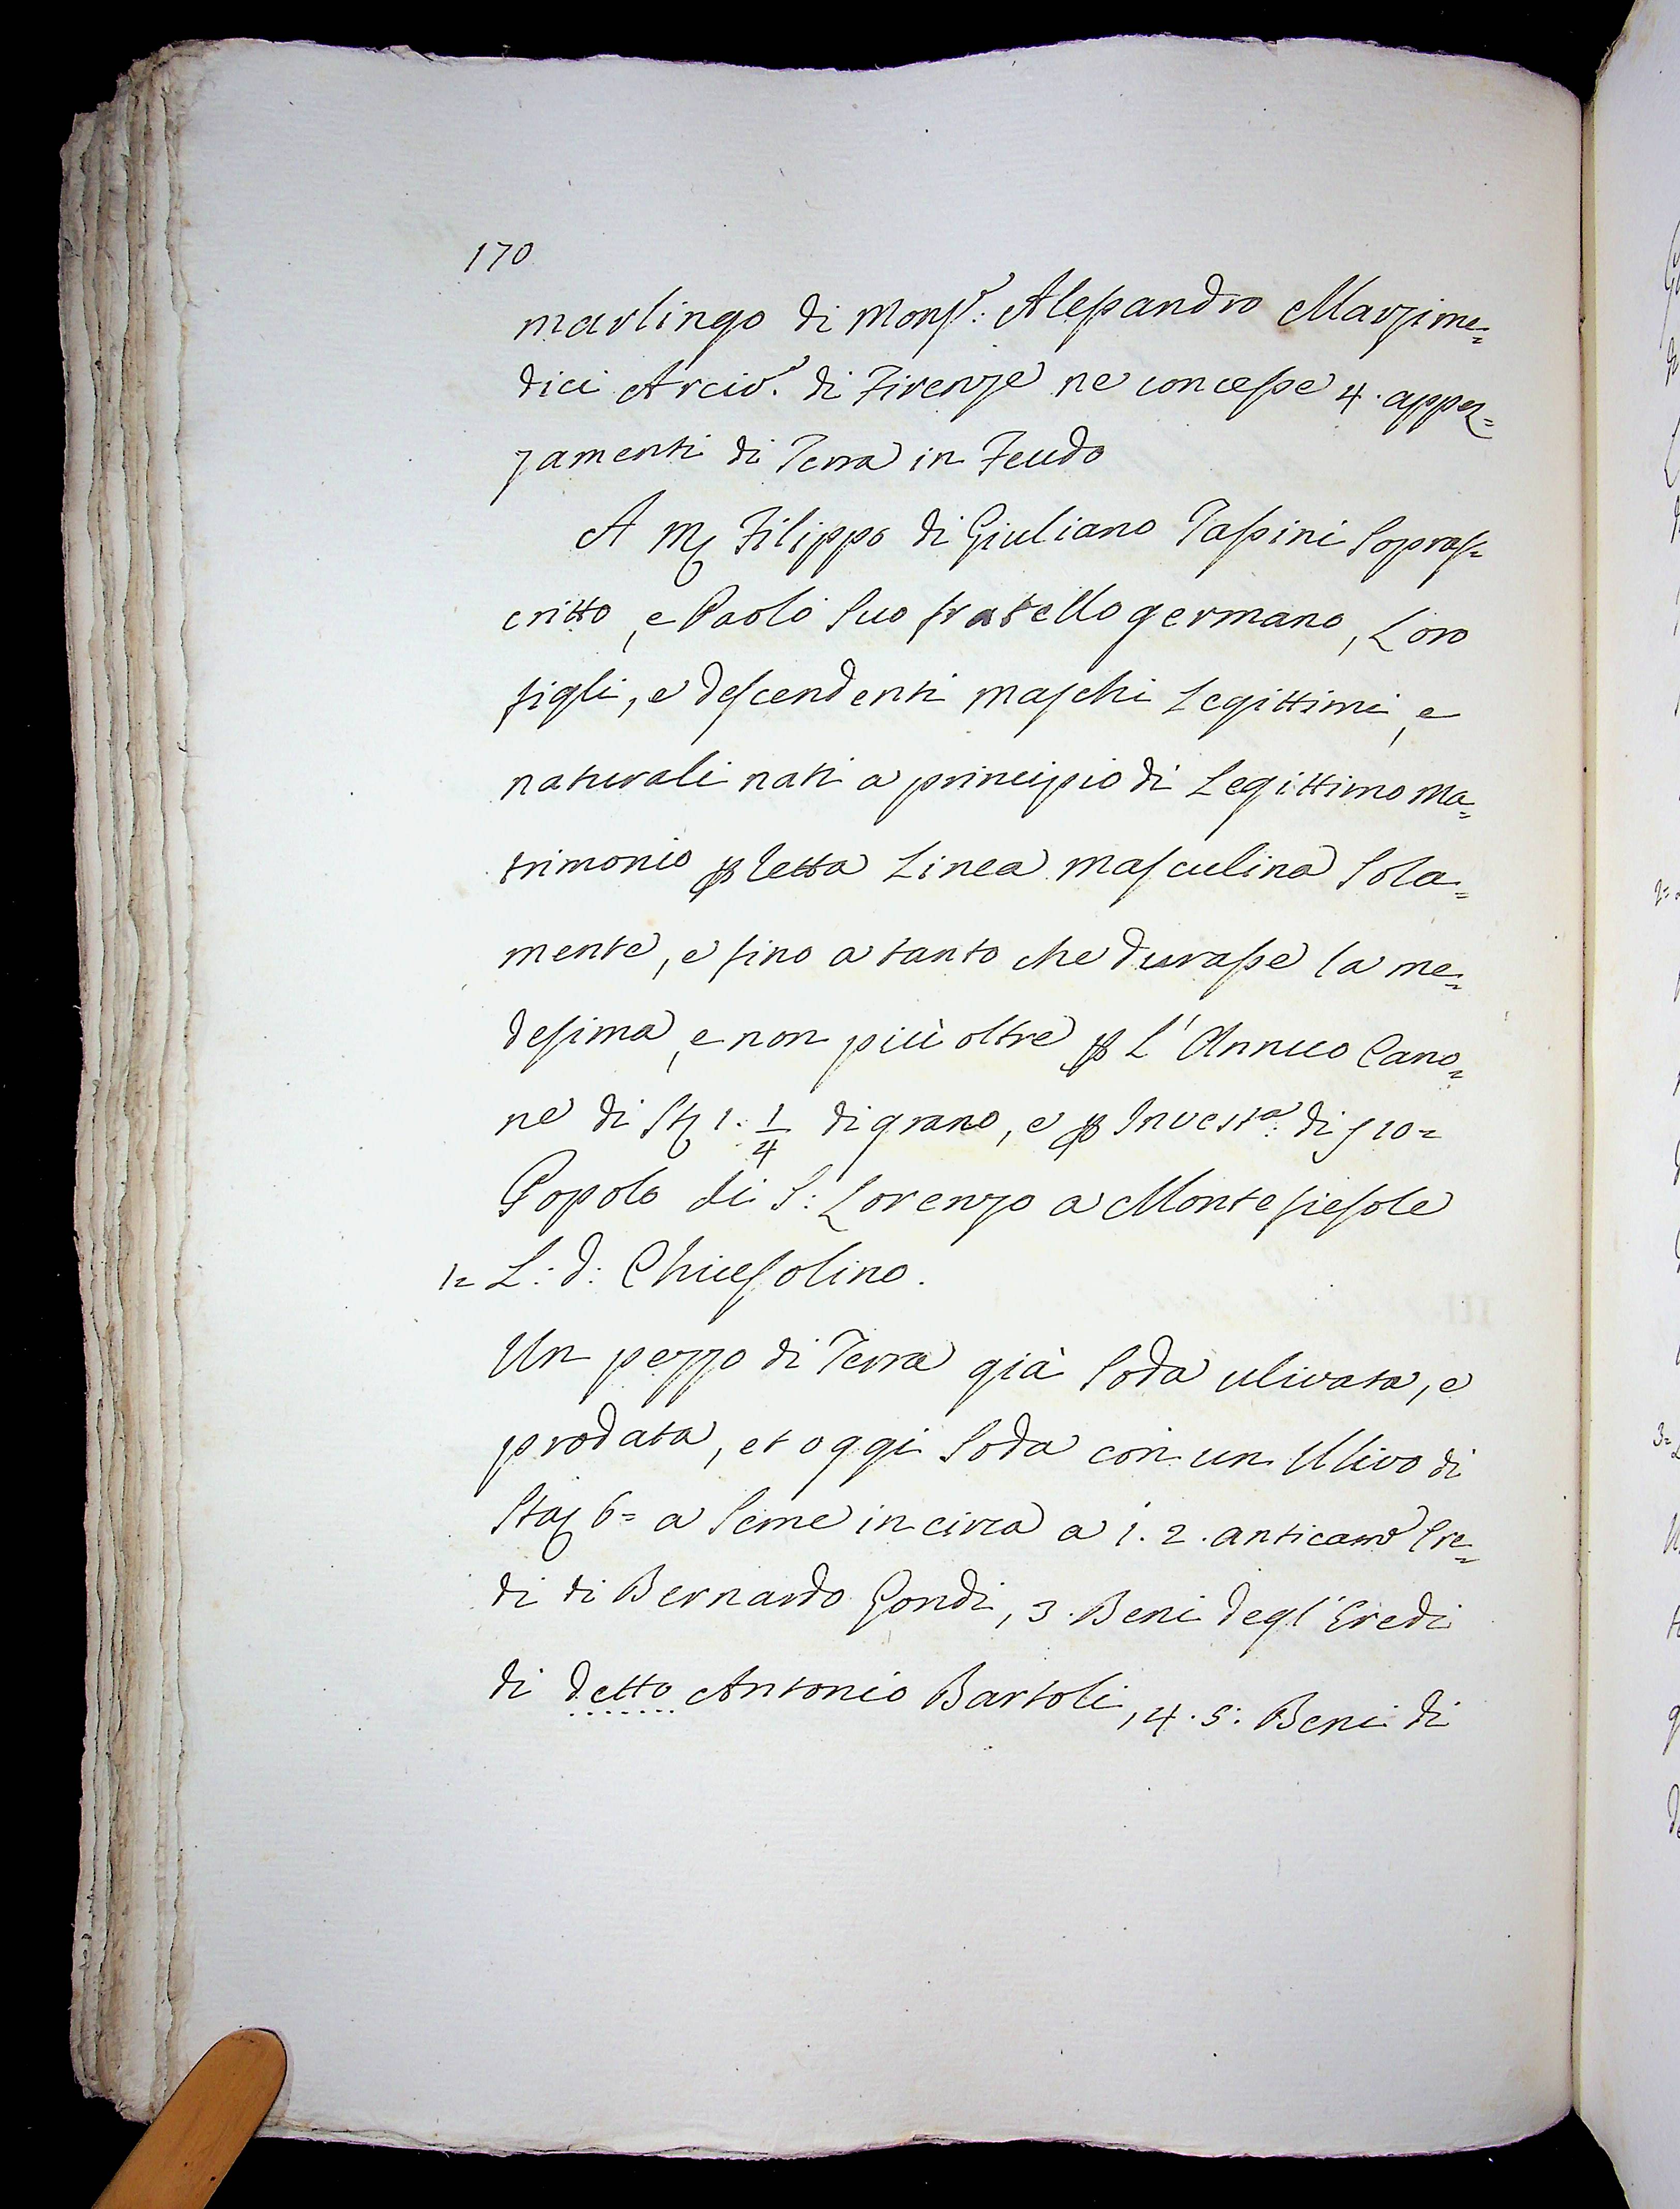 170
marlingo di Monsr: Alessandro Marzime=
dici Arcivo. di Firenze ne concesse 4. appez=
zamenti di Terra in Feudo
A Mr Filippo di Giuliano Tassini Sopras=
critto, e Paolo Suo fratello germano, Loro
figli, e descendenti maschi Legittimi, e
naturali nati a principio di Legittimo Ma=
trimonio p retta Linea masculina Sola=
mente, e fino a tanto che durasse la me=
desima, e non più oltre p L'Annuo Cano=
ne di St 1. 1/4 di grano, e p Investa: di f 10=
Popolo di S: Lorenzo a Montefiesole
1= L: d: Chiesolino.
Un pezzo di Terra già Soda ulivata, e
prodata, et oggi Soda con un Ulivo di
Sta 6= a Seme in circa a 1. 2. anticame Ere=
di di Bernardo Gondi, 3. Beni degl'Eredi
di detto Antonio Bartoli, 4. 5. Beni di